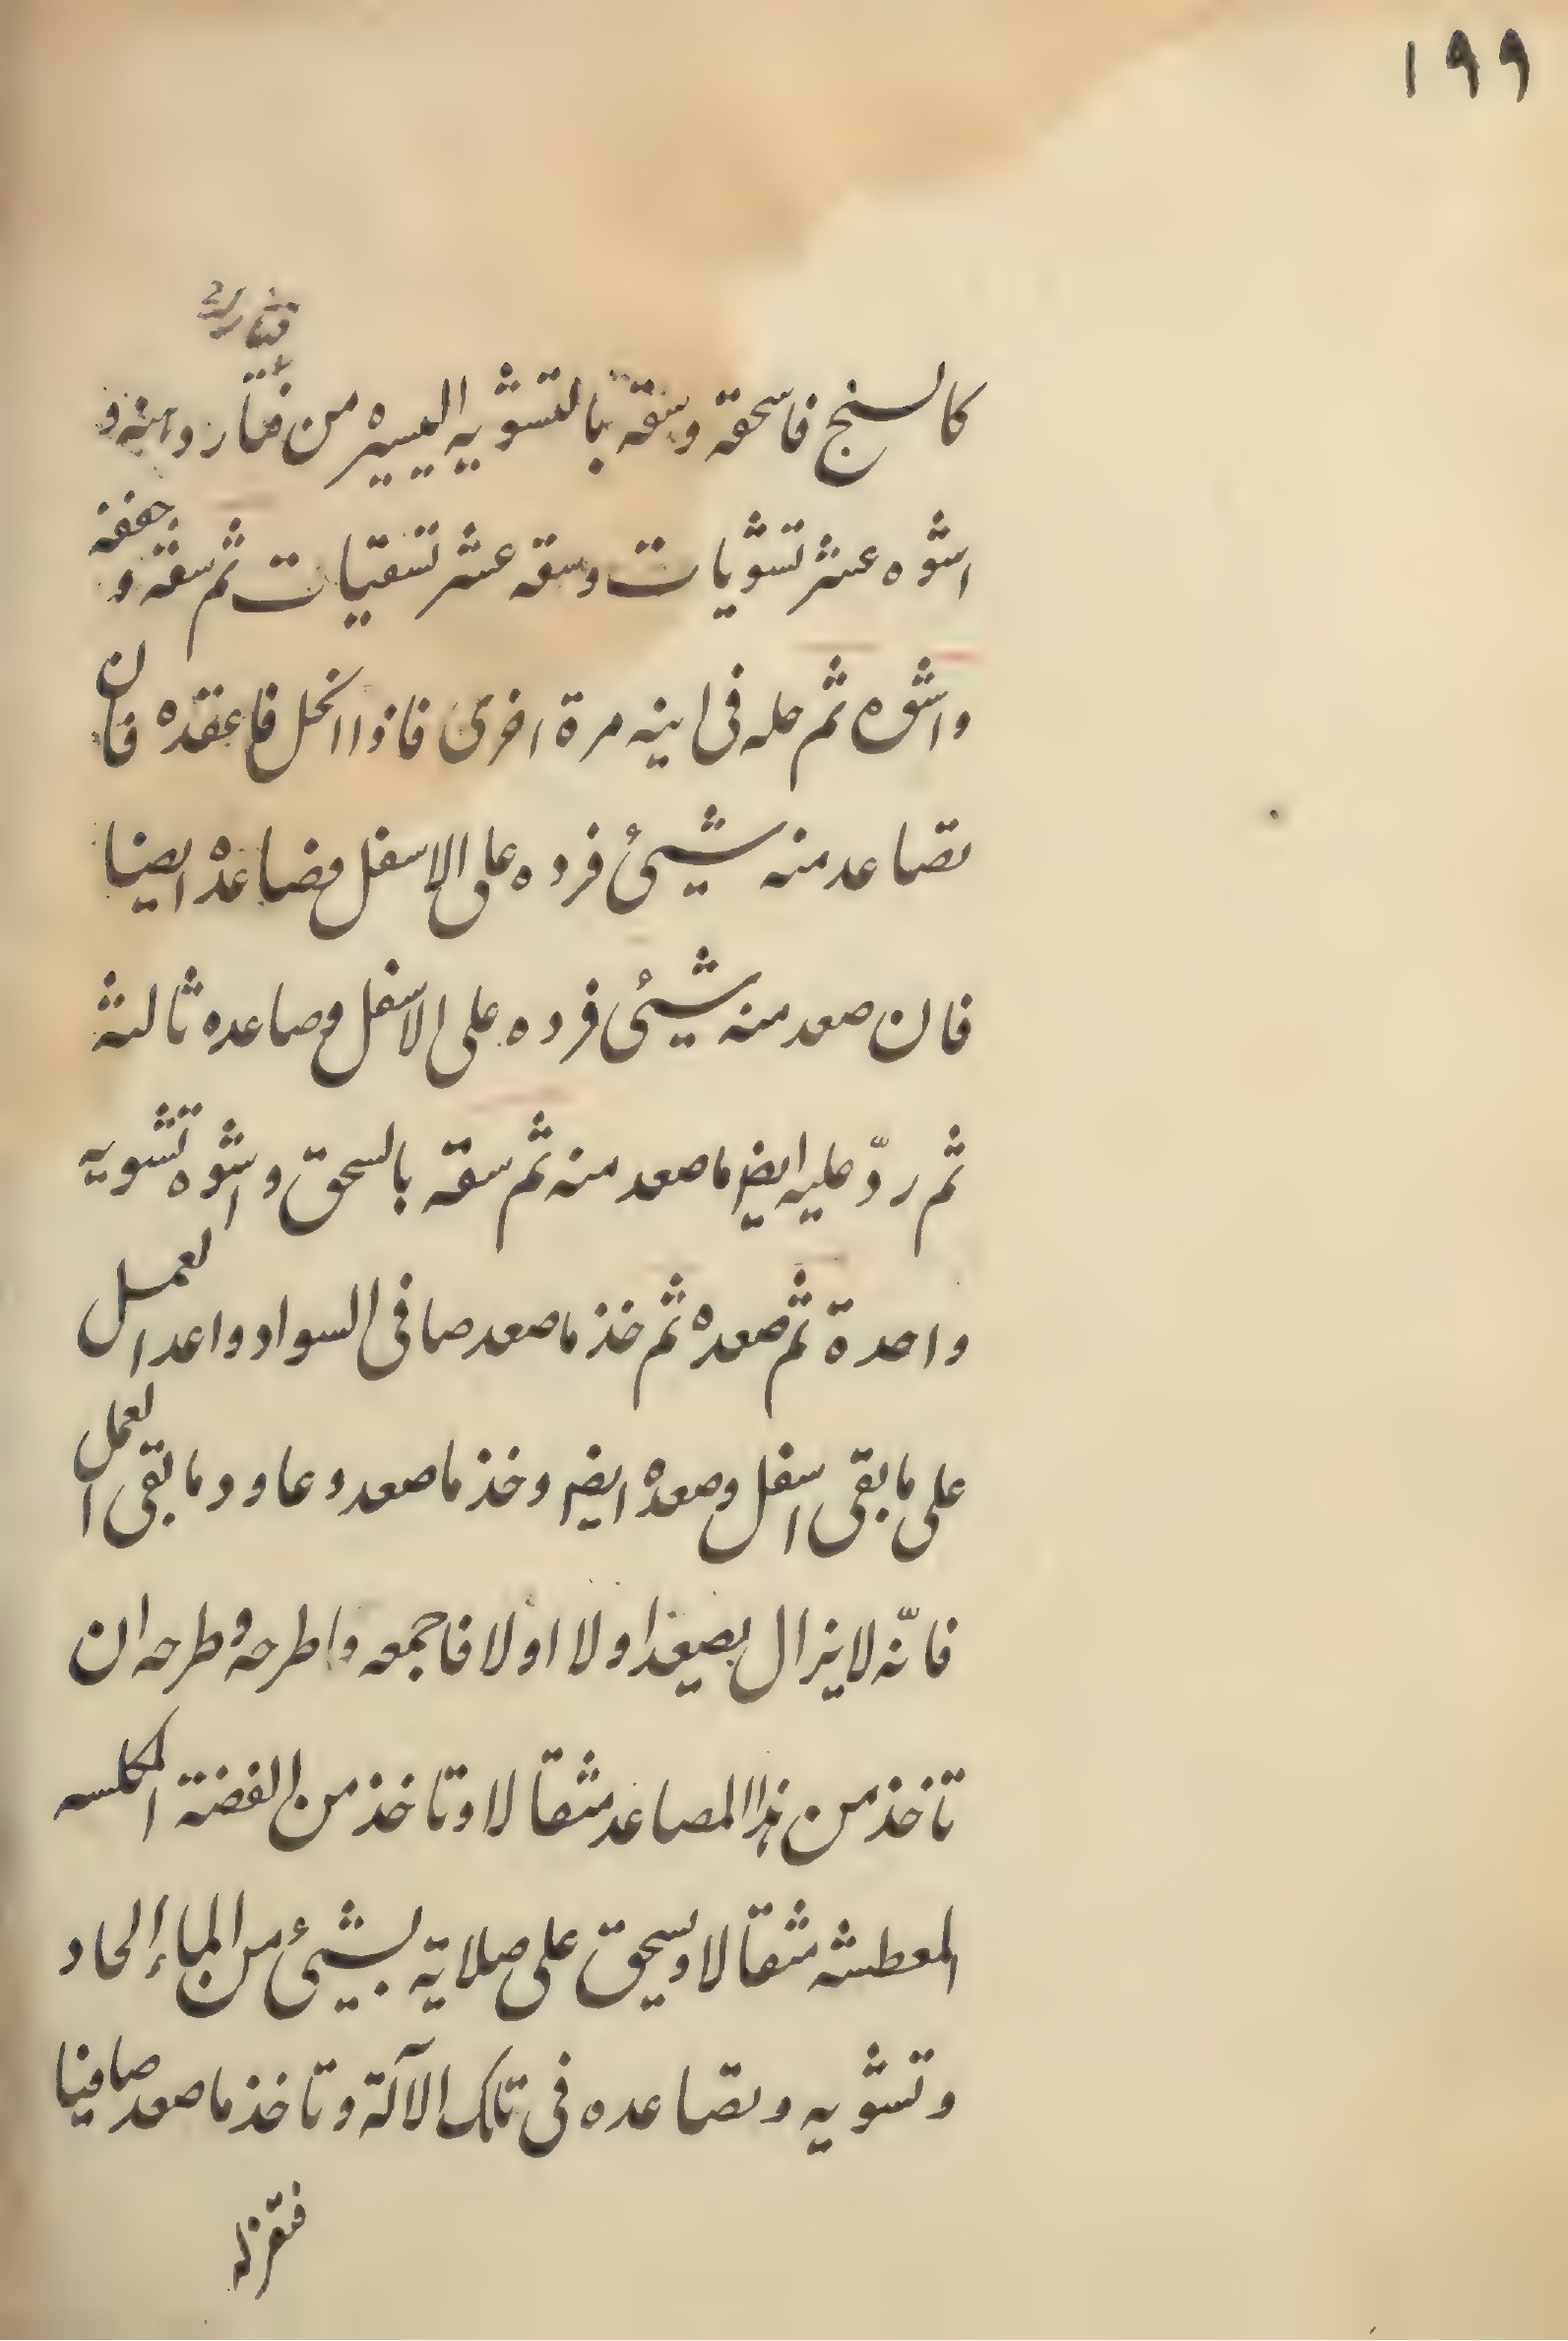 ١٩٩
كالسنج فاسحقه وسقه بالتسويه اليسيره من
اشوه عشر تشويات وسقه عشر تسقيات ثم سقه و جففه
واشوه ثم حله فى اينه مرة اخرى فاذا انحل فاعقده فان
تصاعد منه شيئ فرده على الاسفل وصاعده ايضا
فان صعد منه شيئ فرده على الاسفل وصاعده ثالثه
ثم ردّ عليه ايضا ما صعد منه ثم سقه بالسحق واشوه تشويه
واحدة ثم صعده ثم خذ ما صعد صافى السواد واعد العمل
على ما بقى اسفل وصعده ايضا وخذ ما صعد وعاود ما بقى العمل
فانّه لا يزال يصعد اولا اولا فاجمعه واطرحه وطرحه ان
تاخذ من هذا المصاعد مثقالا وتاخذ من الفضة المكلسه
المعطشه مثقالا وسحق على صلاية بشيئ من الماء الحاد
وتشويه وتصاعده فى تلك الآلة وتاخذ ما صعد صافيا